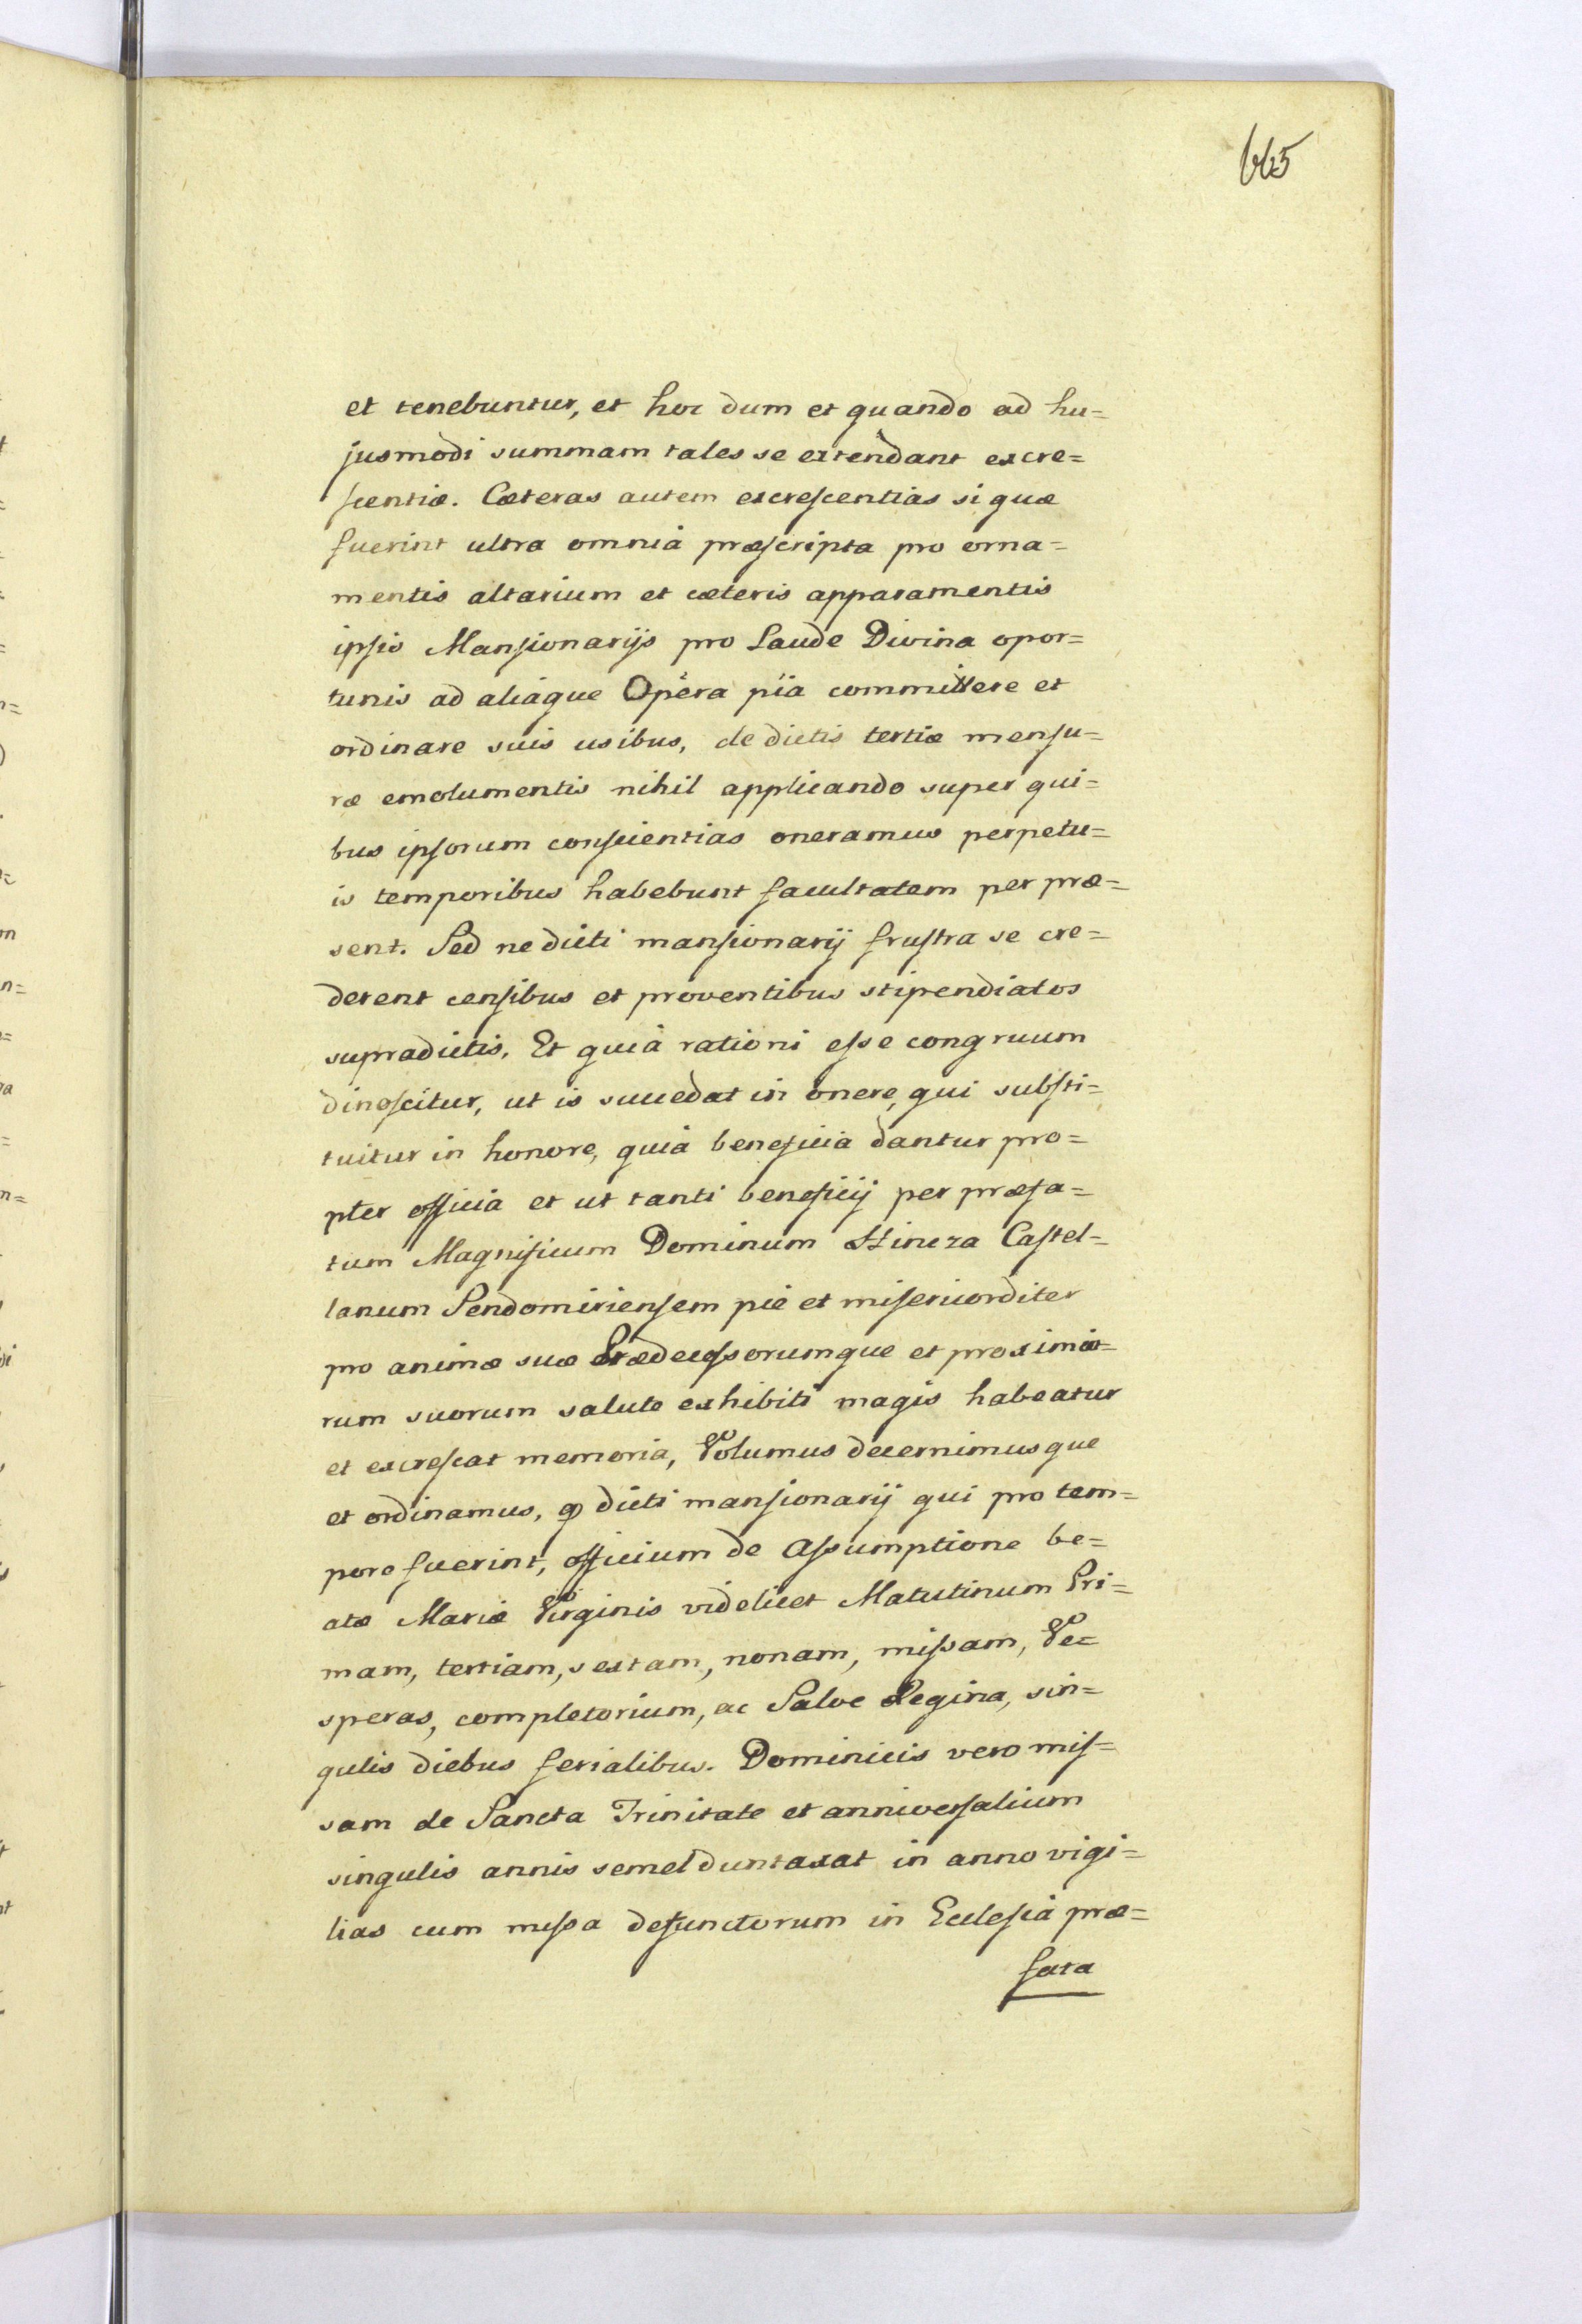 665
et tenebuntur, et hoc dum et quando ad hu=
jusmodi summam tales se extendant excre=
scentiæ. Cæteras autem excrescentias si quæ
fuerint ultra omnià præscripta pro orna=
mentis altarium et cæteris apparamentis
ipsis Mansionarijs pro Laude Divina opor=
tunis ad aliáque Opéra pïa committere et
ordinare suis usibus, de dictis tertiæ mensu=
ræ emolumentis nihil applicando super qui=
bus ipsorum conscientias oneramus perpetu=
is temporibus habebunt facultatem per præ=
sent. Sed ne dicti mansionarij frustra se cre=
derent censibus et proventibus stipendiatos
supradictis, Et quià rationi esse congruum
dinoscitur, ut is succedat in onere, qui substi=
tuitur in honore, quià beneficia dantur pro=
pter officia et ut tanti beneficij per præfa=
tum Magnificum Dominum Hincza Castel=
lanum Sendomiriensem pie et misericorditer
pro animæ suæ Prædecessorumque et proximo=
rum suorum salute exhibiti magis habeatur
et excrescat memoria, Volumus decernimusque
et ordinamus, qđ dicti mansionarij qui pro tem=
pore fuerint, officium de Assumptione be=
atæ Mariæ Virginis videlicet Matutinum Pri=
mam, tertiam, sextam, nonam, missam, Ve=
speras, completorium, ac Salve Regina, sin=
gulis diebus ferialibus. Dominicis vero mis=
sam de Sancta Trinitate et anniversalium
singulis annis semel duntaxat in anno vigi=
lias cum missa defunctorum in Ecclesià præ=
fata